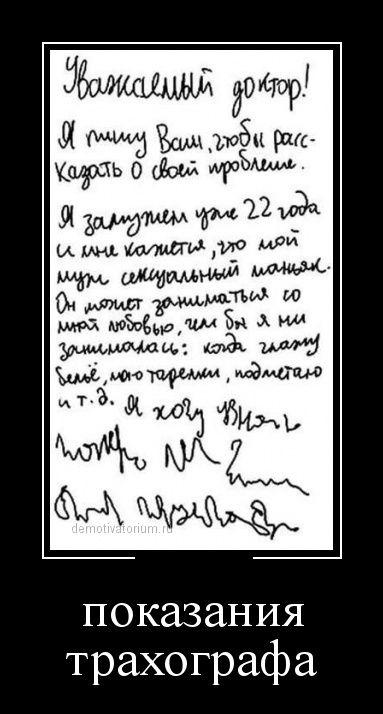 Уважаемый доктор!
Я пишу Вам, чтобы расс-
казать о своей проблеме.
Я замужем уже 22 года
и мне кажется, что мой
муж сексуальный маньяк.
Он может заниматься со
мной любовью, чем бы я ни
занималась: когда глажу
бельё, мою тарелки, подметаю
и т.д. Я хочу узнать
demotivatorium.ru
показания
трахографа